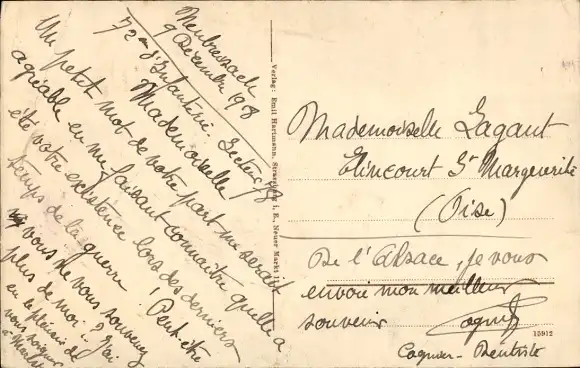 Neubreisach
9 Décembre 1918
72em d'Infanterie. Secteur
Mademoiselle
Un petit mot de votre part me serait
agréable en me faisant connaître quelle a
été votre existence lors des derniers
temps de la guerre. Peut-être
vous ne vous souvenez
plus de moi... ? j'ai
eu le plaisir de
vous soigner
à
Verlag: Emil Hartmann, Strassburg i. E., Neuer Markt
Mademoiselle Lagant
Elincourt Ste Marguerite
(Oise)
De l'Alsace, je vous
envoie mon meilleur
souvenir
Cagnier
15912
Cagnier - Dentiste